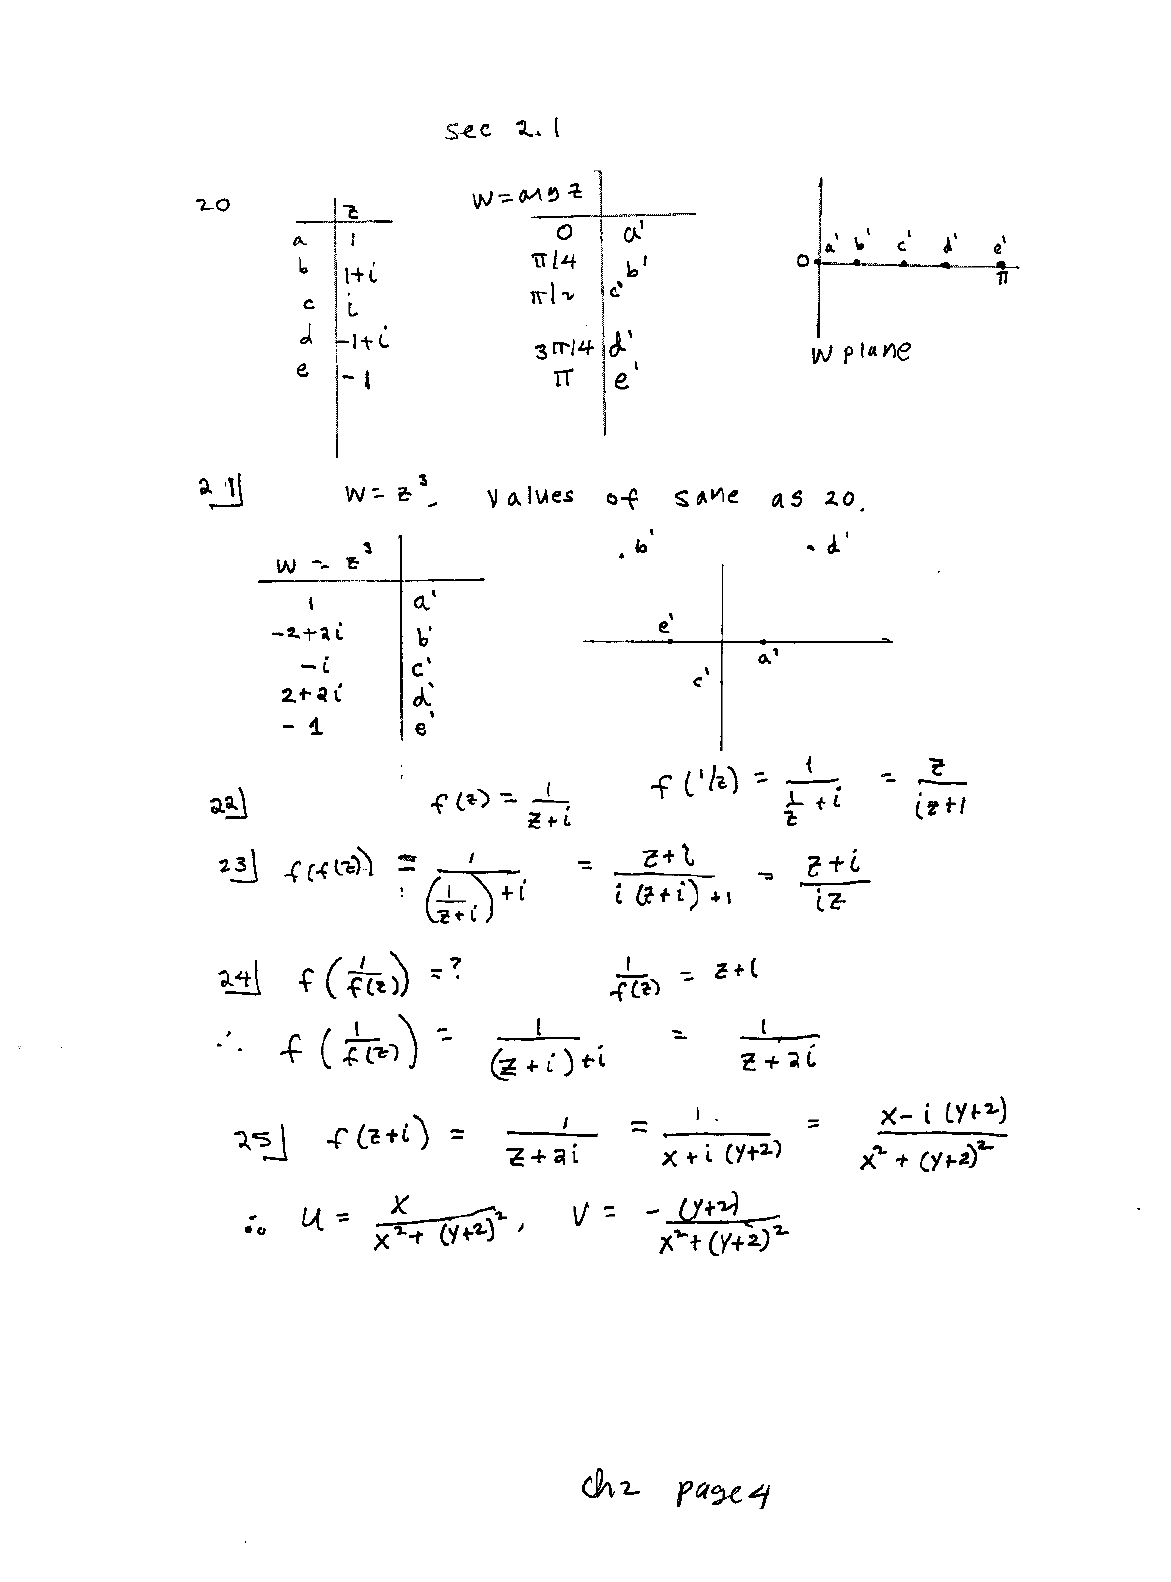 sec 2.1
20
z
w=arg z
a 1 0 a'
b 1+i π/4 b'
c i π/2 c'
d -1+i 3π/4 d'
e -1 π e'
0 a' b' c' d' e' π
W plane
21 w = z³ Values of same as 20.
b' d'
w = z³
1 a'
-2+2i b'
-i c'
2+2i d'
-1 e'
e' a'
c'
22 f(z) = 1/(z+i) f(1/z) = 1/(1/z + i) = z/(iz+1)
23 f(f(z)) = 1/((1/(z+i))+i) = (z+i)/(i(z+i)+1) = (z+i)/(iz)
24 f(1/f(z)) = ? 1/f(z) = z+i
∴ f(1/f(z)) = 1/((z+i)+i) = 1/(z+2i)
25 f(z+i) = 1/(z+2i) = 1/(x+i(y+2)) = (x-i(y+2))/(x²+(y+2)²)
∴ u = x/(x²+(y+2)²), v = -(y+2)/(x²+(y+2)²)
ch2 page 4